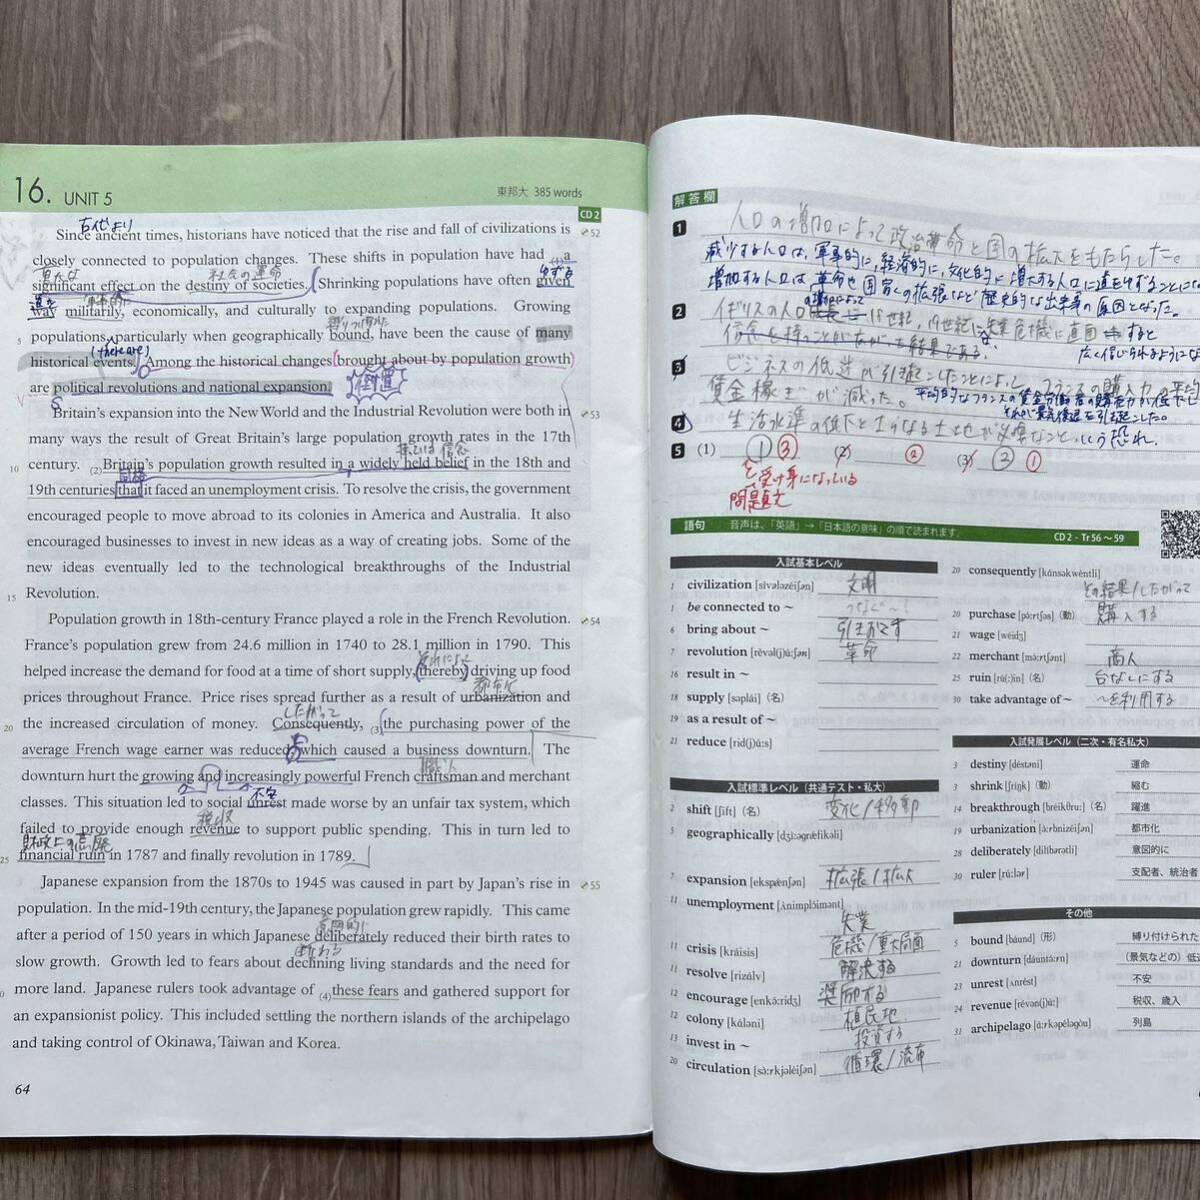 16. UNIT 5
東邦大 385 words
CD 2
古代より
Since ancient times, historians have noticed that the rise and fall of civilizations is
52
closely connected to population changes. These shifts in population have had (1) a
重大な 社会の運命
significant effect on the destiny of societies. Shrinking populations have often given
ゆずる
道を 軍事的
way militarily, economically, and culturally to expanding populations. Growing
縛りつけられた
5 populations, particularly when geographically bound, have been the cause of many
(there are)
historical events. Among the historical changes (brought about by population growth)
are political revolutions and national expansion. 倒置
S
Britain's expansion into the New World and the Industrial Revolution were both in
53
many ways the result of Great Britain's large population growth rates in the 17th
信念
10 century. (2) Britain's population growth resulted in a widely held belief in the 18th and
同格
19th centuries that it faced an unemployment crisis. To resolve the crisis, the government
encouraged people to move abroad to its colonies in America and Australia. It also
encouraged businesses to invest in new ideas as a way of creating jobs. Some of the
new ideas eventually led to the technological breakthroughs of the Industrial
15 Revolution.
Population growth in 18th-century France played a role in the French Revolution.
54
France's population grew from 24.6 million in 1740 to 28.1 million in 1790. This
それによって
helped increase the demand for food at a time of short supply, (thereby) driving up food
都市化
prices throughout France. Price rises spread further as a result of urbanization and
したがって
20 the increased circulation of money. Consequently, (3) (the purchasing power of the
average French wage earner was reduced, which caused a business downturn. The
職人
downturn hurt the growing and increasingly powerful French craftsman and merchant
不安
classes. This situation led to social unrest made worse by an unfair tax system, which
税収
failed to provide enough revenue to support public spending. This in turn led to
財政上の荒廃
25 financial ruin in 1787 and finally revolution in 1789.
Japanese expansion from the 1870s to 1945 was caused in part by Japan's rise in
55
population. In the mid-19th century, the Japanese population grew rapidly. This came
意図的に
after a period of 150 years in which Japanese deliberately reduced their birth rates to
slow growth. Growth led to fears about declining living standards and the need for
0 more land. Japanese rulers took advantage of (4) these fears and gathered support for
an expansionist policy. This included settling the northern islands of the archipelago
and taking control of Okinawa, Taiwan and Korea.
64
解答欄
1 人口の増加によって政治革命と国の拡大をもたらした。
減少する人口は、軍事的に、経済的に、文化的に増大する人口に道をゆずることに
増加する人口は革命や国家の拡張など歴史的な出来事の原因となった。
2 イギリスの人口 の増加によって 18世紀、19世紀に失業危機に直面すると
信念を持つことが 結果である。
広く信じられるようにな
3 ビジネスの低迷が引き起こしたことによって、フランスの購入力の平均
賃金稼ぎが減った。 平均的なフランスの賃金労働者の購買力が低下し
それが景気後退を引き起こした。
4 生活水準の低下とさらなる土地が必要なこという恐れ.
5 (1) ① ③ (2) ② (3) ② ①
を受け身になっている
問題文
語句 音声は、「英語」→「日本語の意味」の順で読まれます。 CD 2 - Tr 56 ~ 59
入試基本レベル
1 civilization [sìvələzéiʃən] 文明
1 be connected to ~ つなが~
6 bring about ~ 引き起こす
7 revolution [rèvəl(j)úːʃən] 革命
16 result in ~
18 supply [səplái] (名)
19 as a result of ~
21 reduce [rid(j)úːs]
入試標準レベル (共通テスト・私大)
2 shift [ʃíft] (名) 変化/移動
5 geographically [dʒìːəgrǽfikəli]
7 expansion [ekspǽnʃən] 拡張/拡大
11 unemployment [ʌ̀nimplɔ́imənt]
失業
11 crisis [kráisis] 危機/重大局面
11 resolve [rizálv] 解決する
12 encourage [enkə́ːridʒ] 奨励する
12 colony [káləni] 植民地
13 invest in ~ 投資する
20 circulation [sə̀ːrkjəléiʃən] 循環/流布
20 consequently [kánsəkwèntli]
その結果/したがって
20 purchase [pə́ːrtʃəs] (動) 購入する
21 wage [wéidʒ]
22 merchant [mə́ːrtʃənt] 商人
25 ruin [rú(ː)in] (名) 台なしにする
30 take advantage of ~ ~を利用する
入試発展レベル (二次・有名私大)
3 destiny [déstəni] 運命
3 shrink [ʃríŋk] (動) 縮む
14 breakthrough [bréikθrùː] (名) 躍進
19 urbanization [ə̀ːrbnizéiʃən] 都市化
28 deliberately [dilíbərətli] 意図的に
30 ruler [rúːlər] 支配者、統治者
その他
5 bound [báund] (形) 縛り付けられた
21 downturn [dáuntə̀ːrn] (景気などの) 低迷
23 unrest [ʌnrést] 不安
24 revenue [révən(j)ùː] 税収、歳入
31 archipelago [ɑ̀ːrkəpéləgòu] 列島